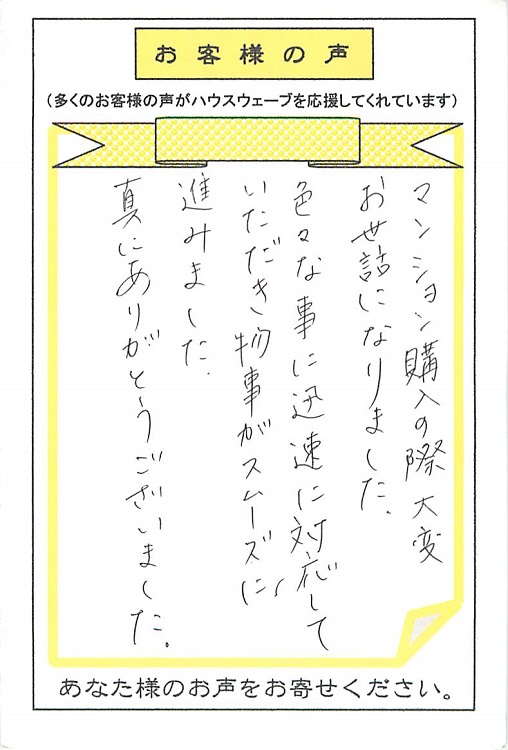 お客様の声
（多くのお客様の声がハウスウェーブを応援してくれています）
マンション購入の際大変
お世話になりました。
色々な事に迅速に対応して
いただき物事がスムーズに
進みました。
真にありがとうございました。
あなた様のお声をお寄せください。